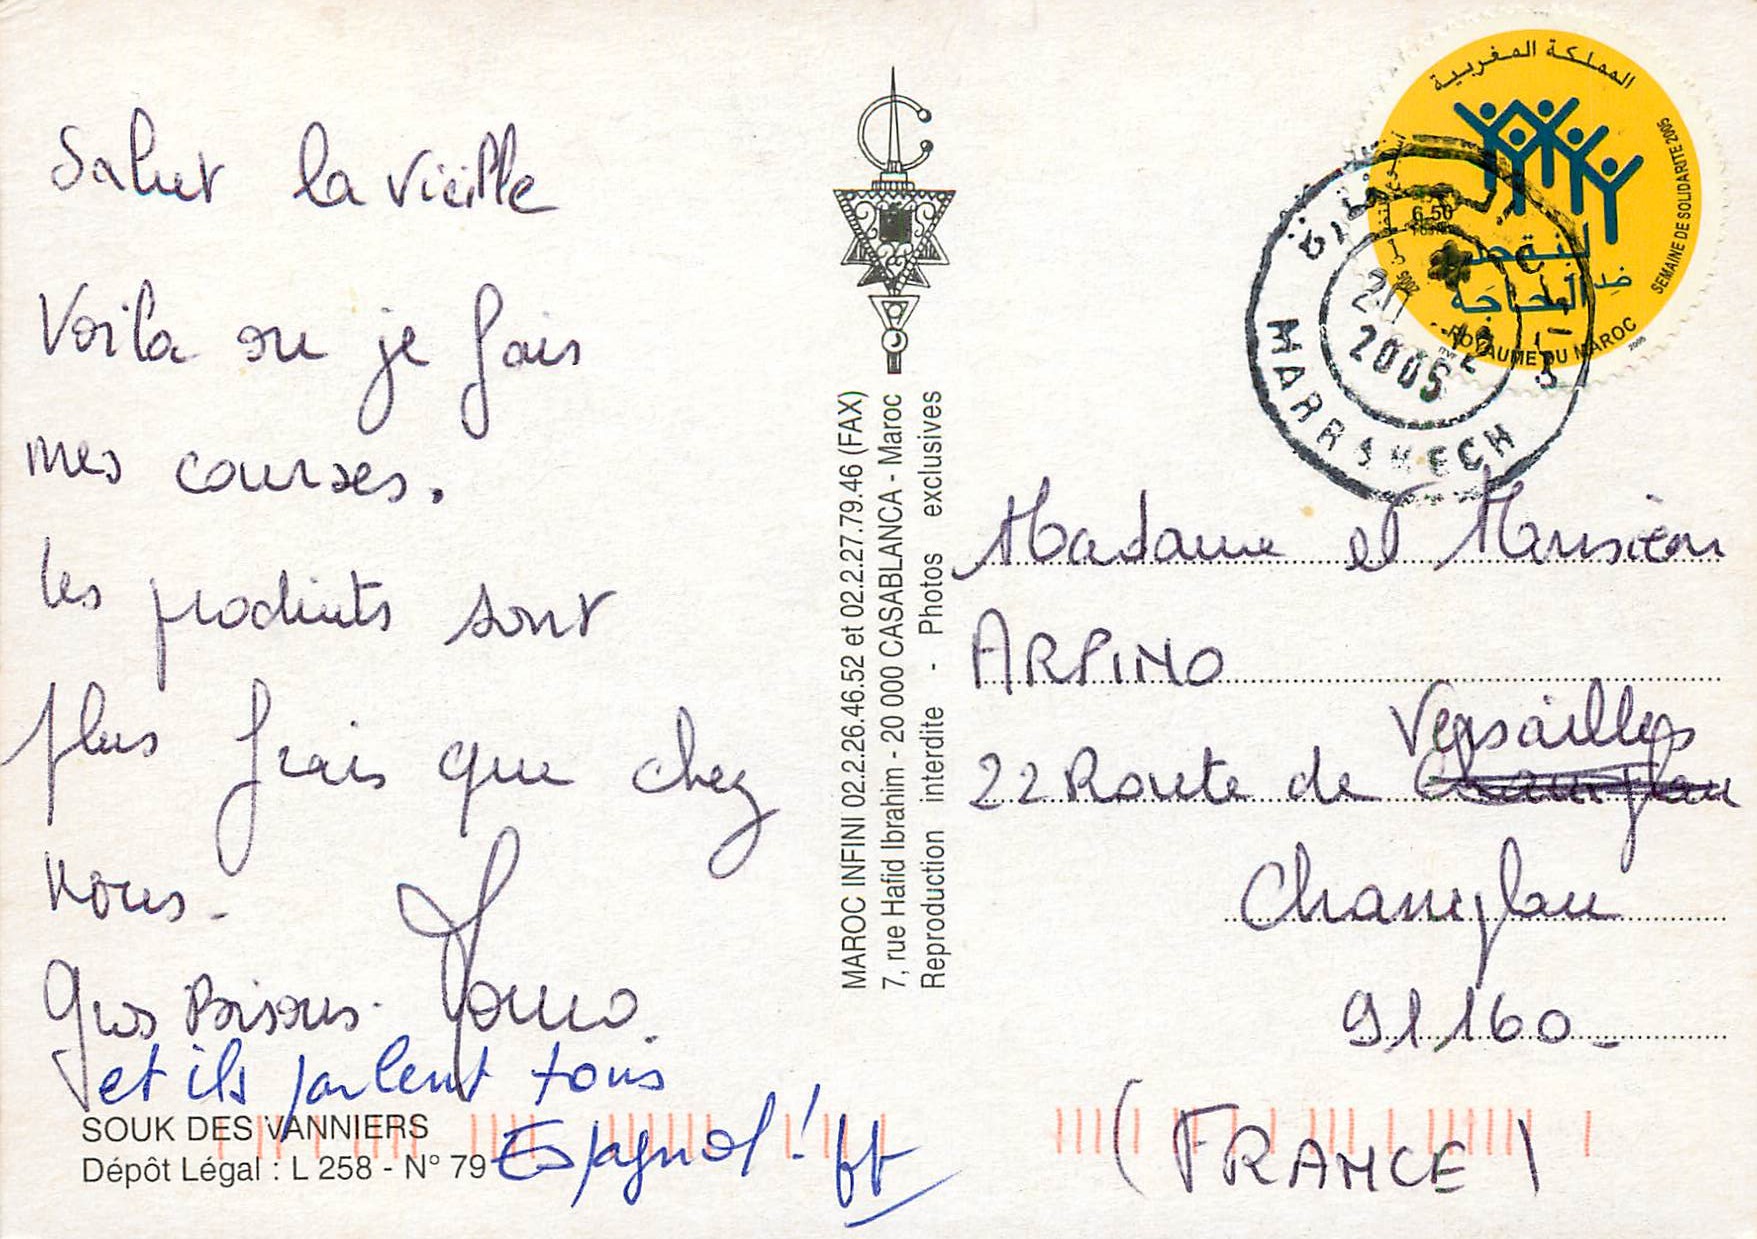 Salut la vieille
Voila ou je fais
mes courses.
les produits sont
plus frais que chez
nous.
Gros Bisous.
et ils parlent tous
Espagnol !
SOUK DES VANNIERS
Dépôt Légal : L 258 - N° 79
MAROC INFINI 02.2.26.46.52 et 02.2.27.79.46 (FAX)
7, rue Hafid Ibrahim - 20 000 CASABLANCA - Maroc
Reproduction interdite - Photos exclusives
المملكة المغربية
SEMAINE DE SOLIDARITE 2005
6,50
ROYAUME DU MAROC
2005
MARRAKECH
Madame et Monsieur
ARPINO
Versailles
22 Route de Champlan
Champlan
91160
(FRANCE)